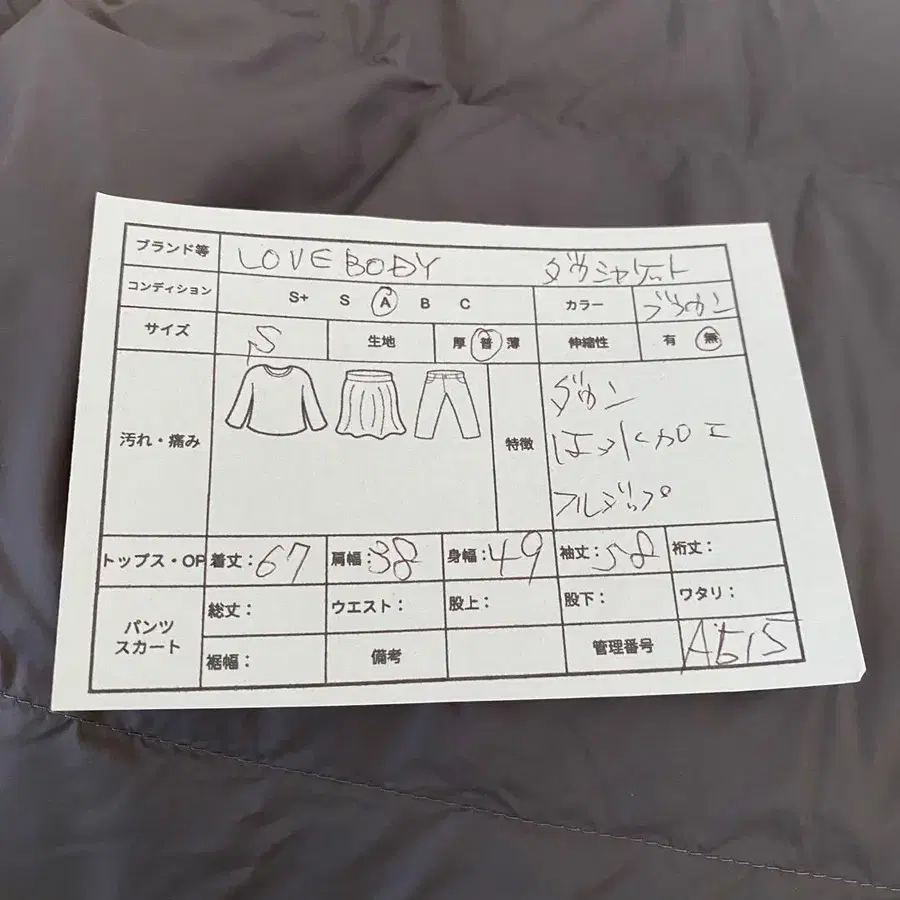 ブランド等 LOVE BODY ダウンジャケット
コンディション S+ S A B C カラー ブラウン
サイズ S 生地 厚 普 薄 伸縮性 有 無
汚れ・痛み 特徴 ダウン
はっ水加工
フルジップ
トップス・OP 着丈:67 肩幅:38 身幅:49 袖丈:58 裄丈:
パンツ スカート 総丈: ウエスト: 股上: 股下: ワタリ:
裾幅: 備考 管理番号 A515